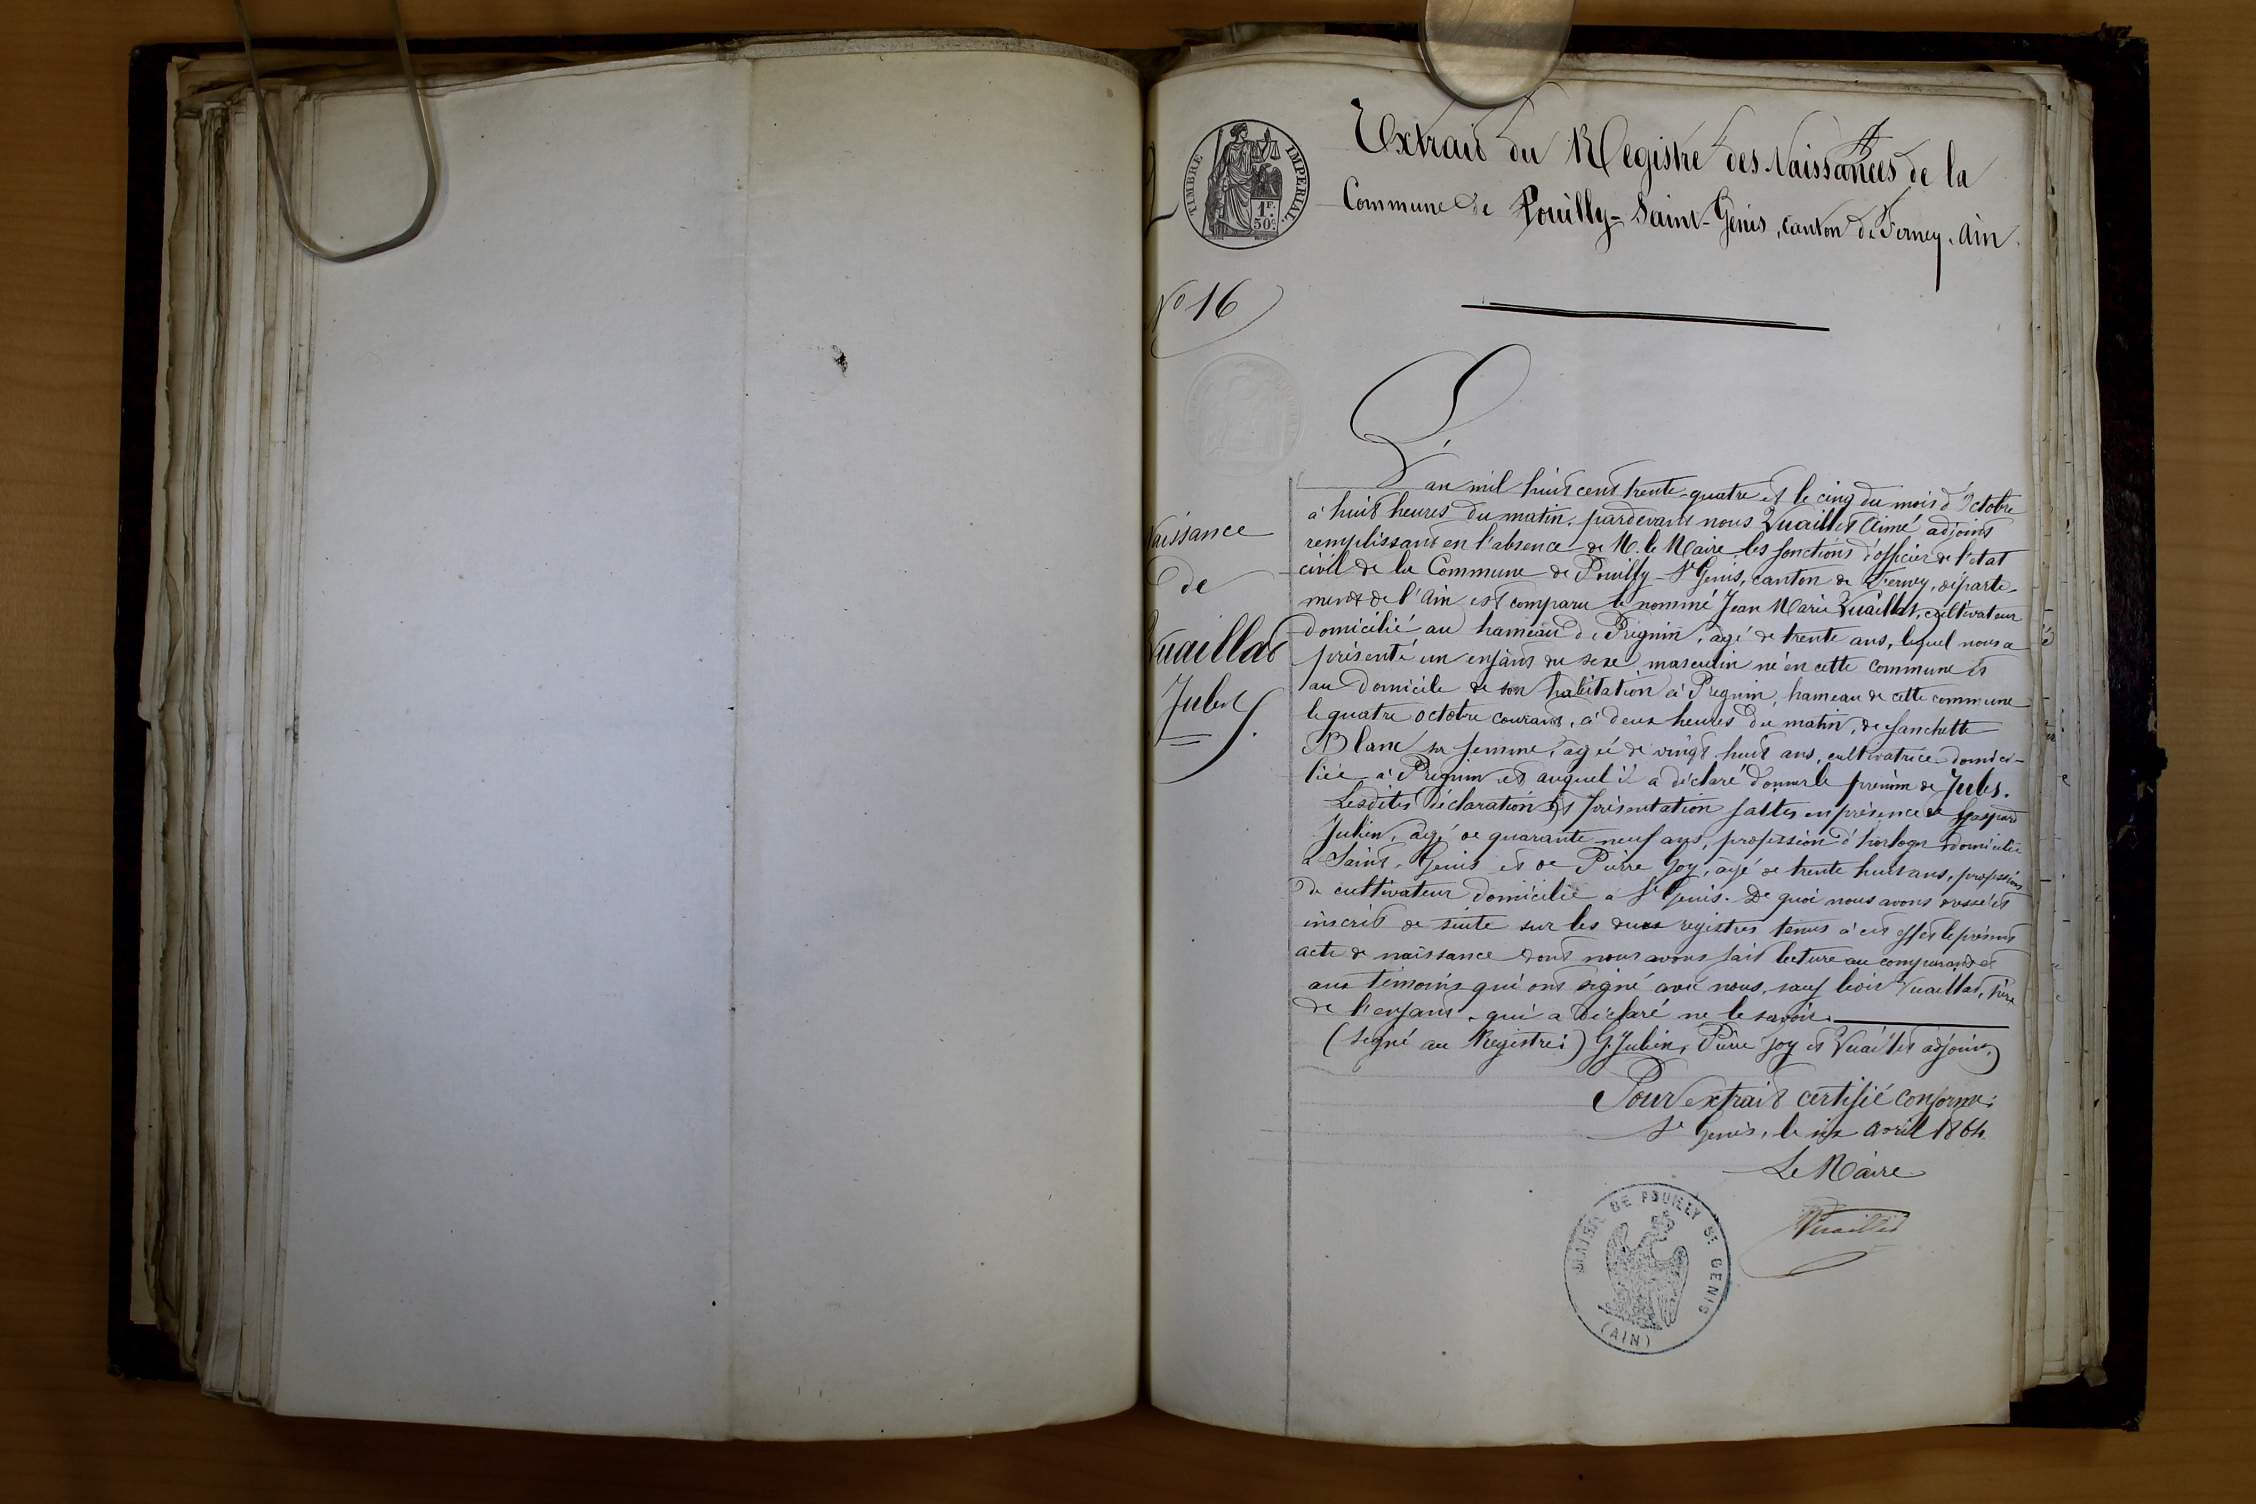 Extrait du Registre des Naissances de la
Commune de Pouilly-Saint-Genis, canton de Ferney. Ain.
TIMBRE IMPERIAL.
1F. 50c.
No 16
Naissance
de
Vuaillat
Jules
L'an mil huit cent trente-quatre et le cinq du mois d'Octobre
à huit heures du matin, pardevant nous Vuaillet Aimé adjoint
remplissant en l'absence de M. le Maire les fonctions d'officier de l'état
civil de la Commune de Pouilly-St Genis, canton de Ferney, départe-
ment de l'Ain est comparu le nommé Jean Marie Vuaillat, cultivateur
domicilié au hameau de Pregnin, agé de trente ans, lequel nous a
présenté un enfant du sexe masculin né en cette commune et
au domicile de son habitation à Pregnin, hameau de cette commune
le quatre octobre courant, à deux heures du matin, de fanchette
Blanc sa femme, agée de vingt huit ans, cultivatrice domici-
liée à Pregnin et auquel il a déclaré donner le prénom de Jules.
Lesdites déclaration et présentation faites en présence de Gaspard
Julien, agé de quarante neuf ans, profession d'horloger domicilié
à Saint-Genis et de Pierre Joy, agé de trente huit ans, profession
de cultivateur domicilié à St Genis. De quoi nous avons dressé et
inscrit de suite sur les deux registres tenus à cet effet le présent
acte de naissance dont nous avons fait lecture au comparant et
aux témoins qui ont signé avec nous, sauf ledit Vuaillat, père
de l'enfant, qui a déclaré ne le savoir.
(Signé au Registre:) G. Julien, Pierre Joy et Vuaillet adjoint)
Pour extrait certifié conforme:
St Genis, le six avril 1864.
Le Maire
Vuaillet
MAIRIE DE POUILLY ST GENIS
(AIN)